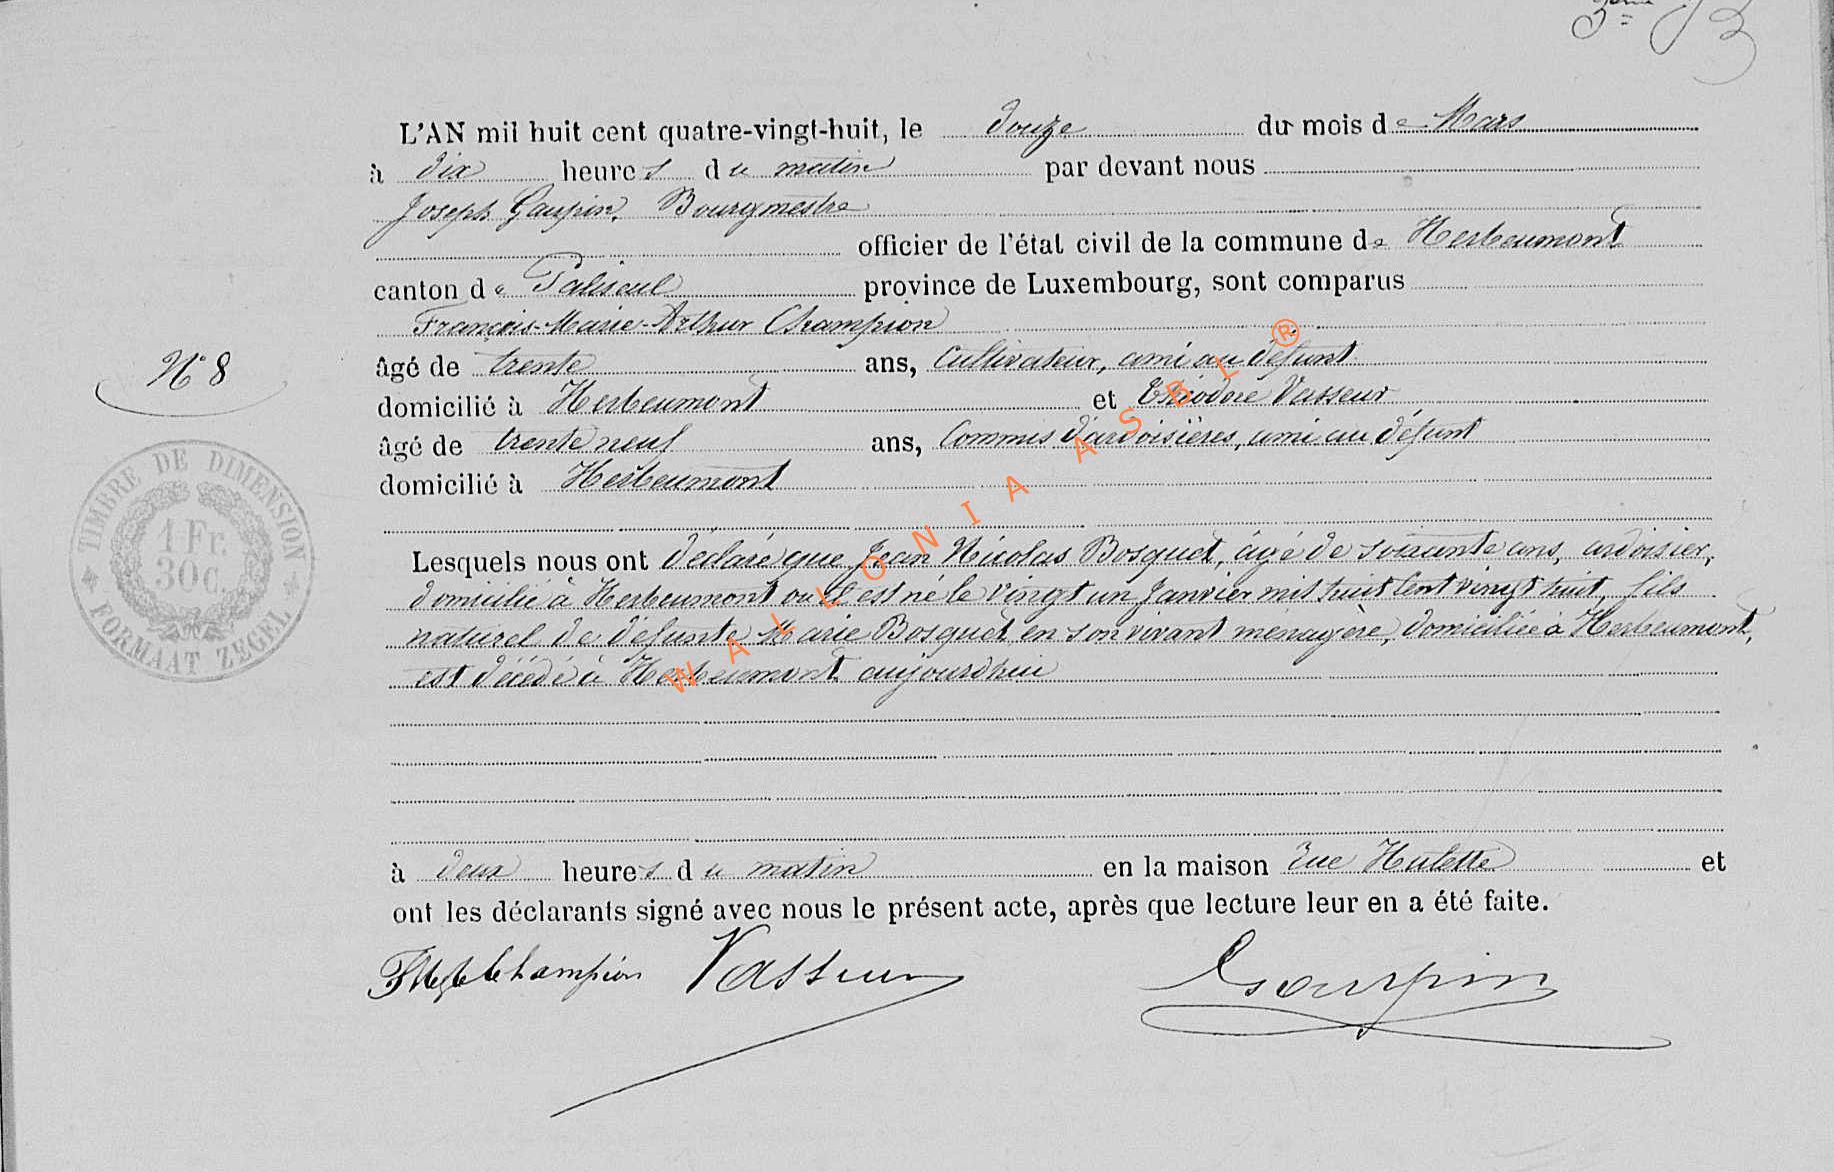 3eme
L'AN mil huit cent quatre-vingt-huit, le douze du mois de Mars
à dix heures du matin par devant nous
Joseph Gaupin, Bourgmestre
officier de l'état civil de la commune de Herbeumont
canton de Paliseul province de Luxembourg, sont comparus
François-Marie-Arthur Champion
âgé de trente ans, Cultivateur, ami au défunt
domicilié à Herbeumont et Théodore Vasseur
N° 8
âgé de trente neuf ans, Commis d'ardoisières, ami au défunt
domicilié à Herbeumont
TIMBRE DE DIMENSION
1 Fr.
30 C.
FORMAAT ZEGEL
Lesquels nous ont déclaré que Jean Nicolas Bosquet, âgé de soixante ans, ardoisier,
domicilié à Herbeumont où il est né le vingt un Janvier mil huit cent vingt huit, fils
naturel de défunte Marie Bosquet en son vivant ménagère, domiciliée à Herbeumont,
est décédé à Herbeumont aujourd'hui
à deux heures du matin en la maison rue Hulette et
ont les déclarants signé avec nous le présent acte, après que lecture leur en a été faite.
Champion Vasseur Gaupin
WALLONIA ASBL ®